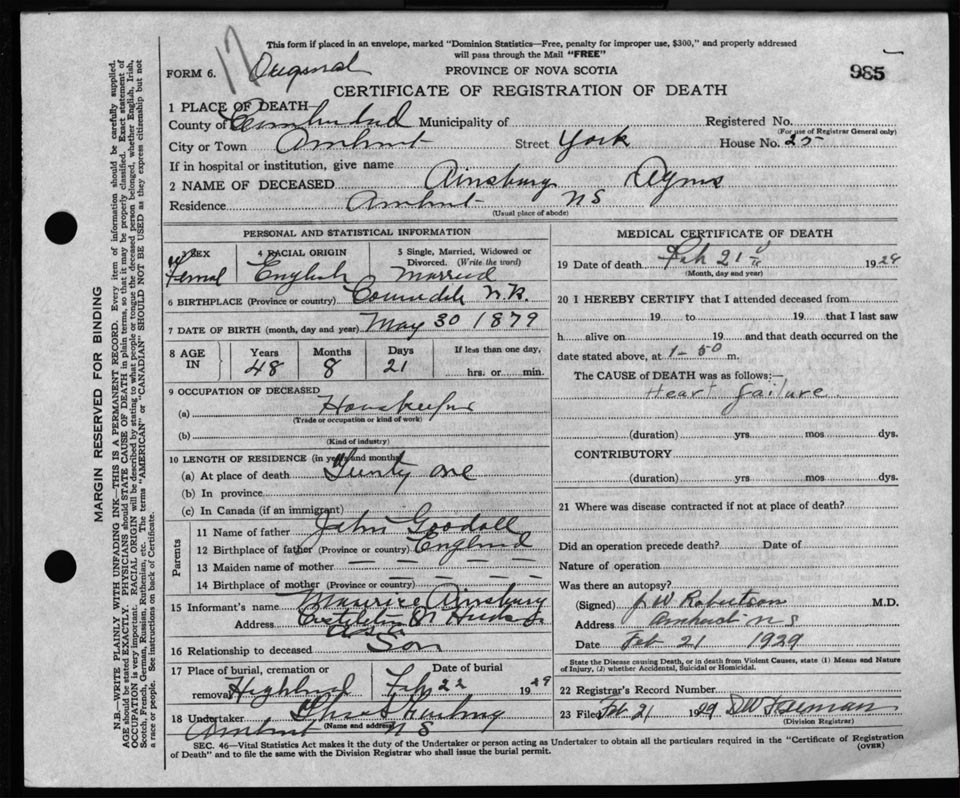 This form if placed in an envelope, marked "Dominion Statistics—Free, penalty for improper use, $300," and properly addressed
will pass through the Mail "FREE"
FORM 6. 17 Original PROVINCE OF NOVA SCOTIA 985
CERTIFICATE OF REGISTRATION OF DEATH
1 PLACE OF DEATH
County of Cumberland Municipality of Registered No.
(For use of Registrar General only)
City or Town Amherst Street York House No. 25
If in hospital or institution, give name
2 NAME OF DECEASED Ainsbury Agnes
Residence Amherst NS
(Usual place of abode)
PERSONAL AND STATISTICAL INFORMATION
SEX 4 RACIAL ORIGIN 5 Single, Married, Widowed or
Divorced. (Write the word)
Femal English Married
6 BIRTHPLACE (Province or country) N.B.
7 DATE OF BIRTH (month, day and year) May 30 1879
8 AGE IN Years Months Days If less than one day,
48 8 21 hrs. or min.
9 OCCUPATION OF DECEASED
(a) Housekeeper
(Trade or occupation or kind of work)
(b)
(Kind of industry)
10 LENGTH OF RESIDENCE (in years and months)
(a) At place of death Twenty one
(b) In province
(c) In Canada (if an immigrant)
Parents
11 Name of father John Goodall
12 Birthplace of father (Province or country) England
13 Maiden name of mother — — — —
14 Birthplace of mother (Province or country) — — —
15 Informant's name Maurice Ainsbury
Address
16 Relationship to deceased Son
17 Place of burial, cremation or Date of burial
removal Highland Feby 22 1929
18 Undertaker
(Name and address)
Amherst NS
MEDICAL CERTIFICATE OF DEATH
19 Date of death Feb 21 1929
(Month, day and year)
20 I HEREBY CERTIFY that I attended deceased from
19 to 19 that I last saw
h alive on 19 and that death occurred on the
date stated above, at 1-50 m.
The CAUSE of DEATH was as follows:—
Heart failure
(duration) yrs. mos dys.
CONTRIBUTORY
(duration) yrs. mos. dys.
21 Where was disease contracted if not at place of death?
Did an operation precede death? Date of
Nature of operation
Was there an autopsy?
(Signed) J W Robertson M.D.
Address Amherst N S
Date Feb 21 1929
State the Disease causing Death, or in death from Violent Causes, state (1) Means and Nature
of Injury, (2) whether Accidental, Suicidal or Homicidal.
22 Registrar's Record Number
23 Filed Feb 21 1929
(Division Registrar)
SEC. 46—Vital Statistics Act makes it the duty of the Undertaker or person acting as Undertaker to obtain all the particulars required in the "Certificate of Registration
of Death" and to file the same with the Division Registrar who shall issue the burial permit. (OVER)
MARGIN RESERVED FOR BINDING
N.B.—WRITE PLAINLY WITH UNFADING INK—THIS IS A PERMANENT RECORD. Every item of information should be carefully supplied.
AGE should be stated EXACTLY. PHYSICIANS should STATE CAUSE OF DEATH in plain terms, so that it may be properly classified. Exact statement of
OCCUPATION is very important. RACIAL ORIGIN will be described by stating to what people or tongue the deceased person belonged, whether English, Irish,
Scotch, French, German, Russian, Ruthenian, etc. The terms "AMERICAN" or "CANADIAN" SHOULD NOT BE USED as they express citizenship but not
a race or people. See instructions on back of Certificate.